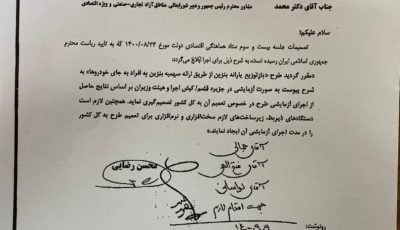 جناب آقای دکتر محمد
مشاور محترم رئیس جمهور و دبیر شورایعالی مناطق آزاد تجاری-صنعتی و ویژه اقتصادی
سلام علیکم؛
تصمیمات جلسه بیست و سوم ستاد هماهنگی اقتصادی دولت مورخ ۱۴۰۰/۰۸/۲۳ که به تایید ریاست محترم
جمهوری اسلامی ایران رسیده است، به شرح ذیل برای اجرا ابلاغ می‌گردد:
«مقرر گردید طرح «بازتوزیع یارانه بنزین از طریق ارائه سهمیه بنزین به افراد به جای خودروها» به
شرح پیوست به صورت آزمایشی در جزیره قشم/کیش اجرا و هیئت وزیران بر اساس نتایج حاصل
از اجرای آزمایشی طرح در خصوص تعمیم آن به کل کشور تصمیم‌گیری نماید. همچنین لازم است
دستگاه‌های ذیربط، زیرساخت‌های لازم سخت‌افزاری و نرم‌افزاری برای تعمیم طرح به کل کشور
را در مدت اجرای آزمایشی آن ایجاد نمایند.»
آقای جمالی
محسن رضایی
آقای
آقای لواسانی
جهت اقدام لازم
رونوشت: